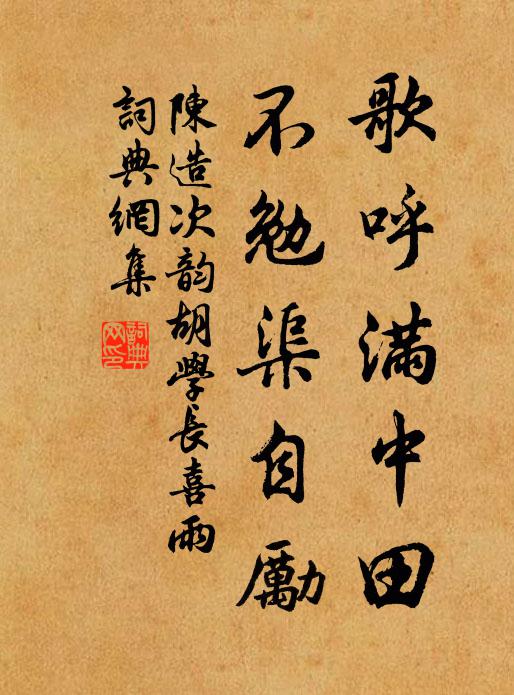 歌呼满中田
不勉渠自勵
陳造次韵胡學長喜雨
詞典網集
詞典網印